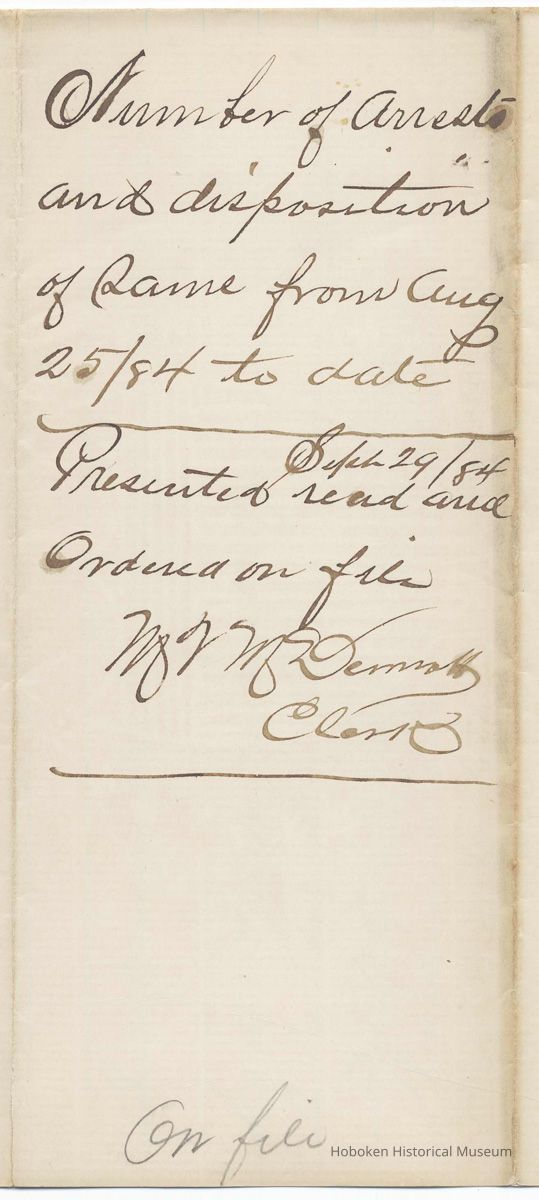 Number of Arrests
and disposition
of Same from Aug
25/84 to date
Sept 29/84
Presented read and
Ordered on file
McDermott
Clerk
On file
Hoboken Historical Museum